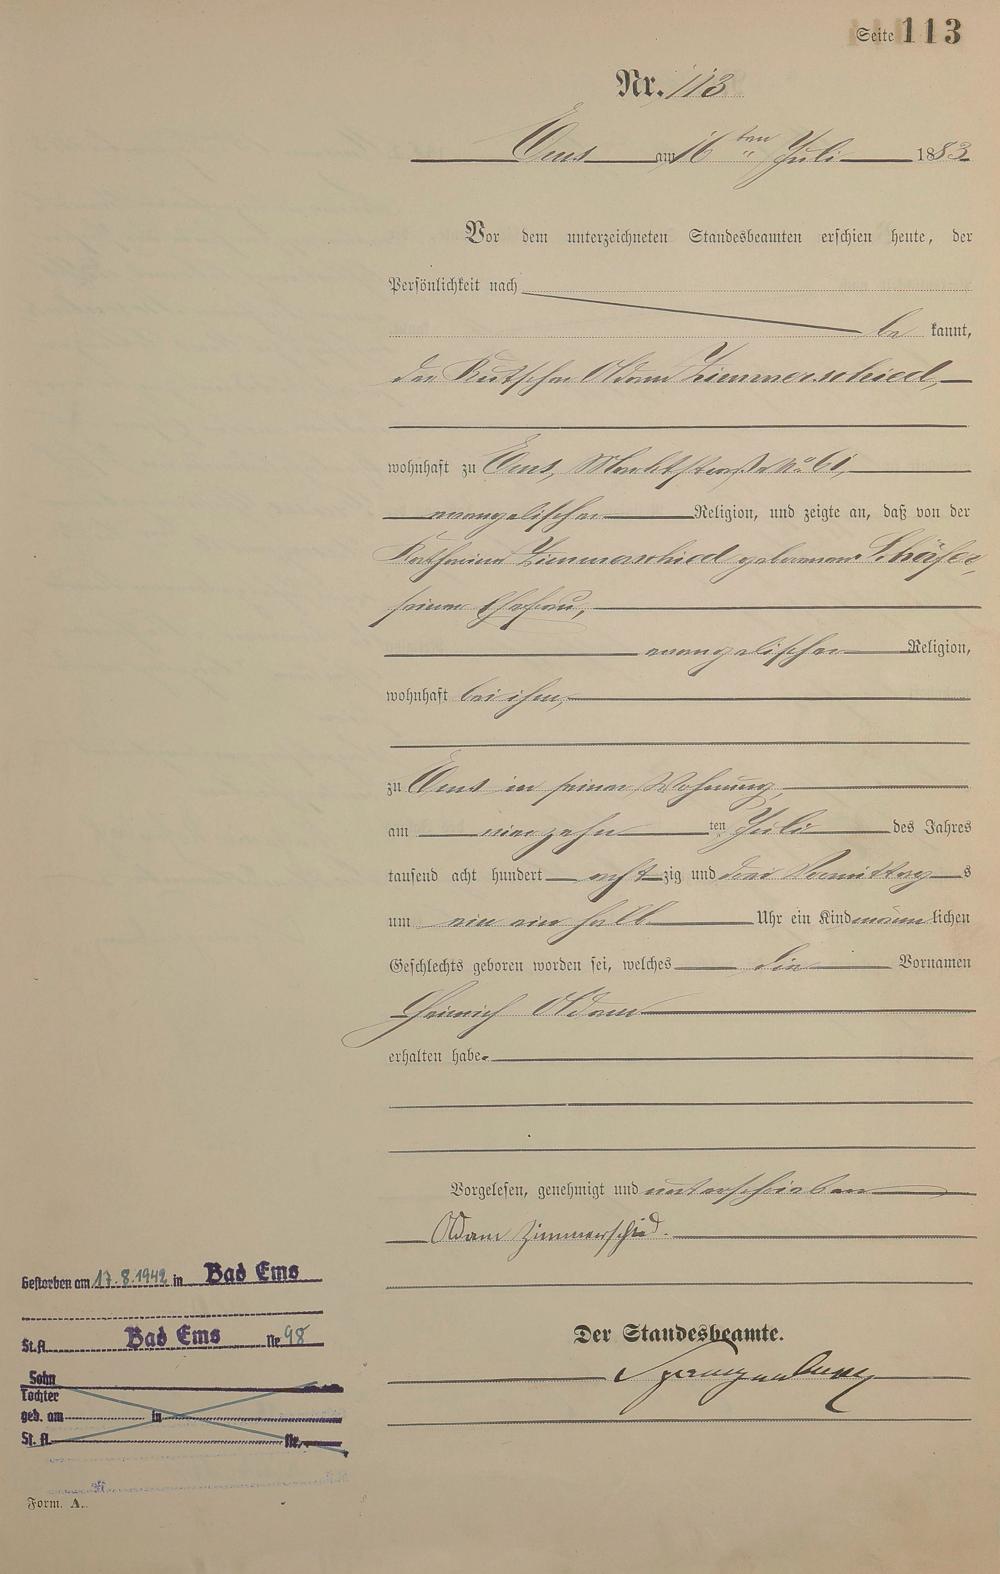 Seite 113
Nr. 113
Ems am 16ten Juli 1883
Vor dem unterzeichneten Standesbeamten erschien heute, der
Persönlichkeit nach
be kannt,
der Kutscher Adam Zimmerschied,
wohnhaft zu Ems, Marktstraße No 61,
evangelischer Religion, und zeigte an, daß von der
Katharina Zimmerschied geborenen Schäfer,
seiner Ehefrau,
evangelischer Religion,
wohnhaft bei ihm,
zu Ems in seiner Wohnung,
am vierzehnten Juli des Jahres
tausend acht hundert achtzig und drei Vormittags
um ein ein halb Uhr ein Kind männlichen
Geschlechts geboren worden sei, welches die Vornamen
Heinrich Adam
erhalten habe.
Vorgelesen, genehmigt und unterschrieben
Adam Zimmerschied.
Der Standesbeamte.
Gestorben am 17.8.1942 in Bad Ems
St.A. Bad Ems Nr. 98
Sohn
Tochter
geb. am in
St. A. Nr.
Form. A.